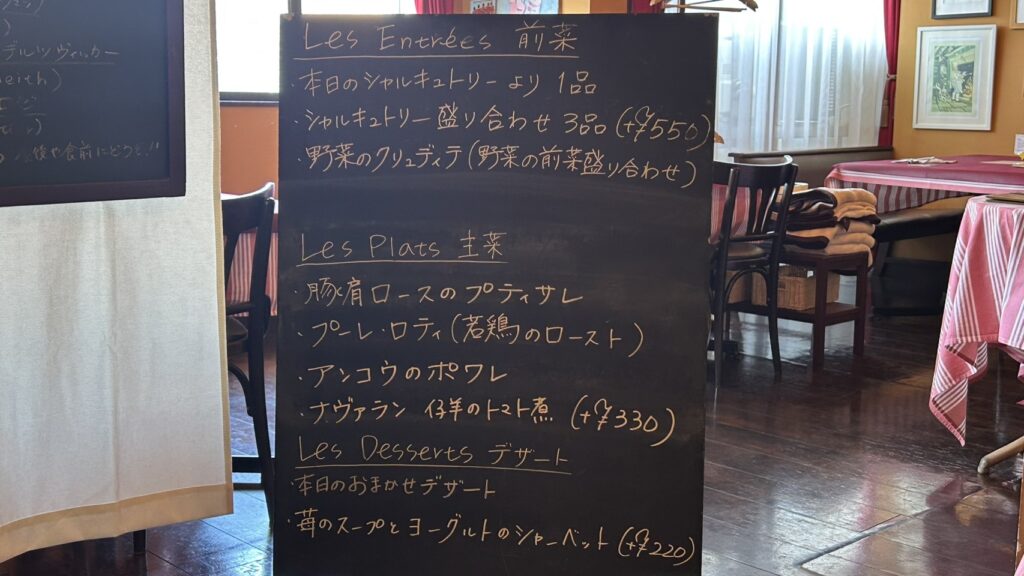 デルツヴィッカー
後や食前にどうぞ!!
Les Entrées 前菜
・本日のシャルキュトリーより 1品
・シャルキュトリー盛り合わせ 3品 (+¥550)
・野菜のクリュディテ(野菜の前菜盛り合わせ)
Les Plats 主菜
・豚肩ロースのプティサレ
・プーレ・ロティ(若鶏のロースト)
・アンコウのポワレ
・ナヴァラン 仔羊のトマト煮 (+¥330)
Les Desserts デザート
・本日のおまかせデザート
・苺のスープとヨーグルトのシャーベット (+¥220)